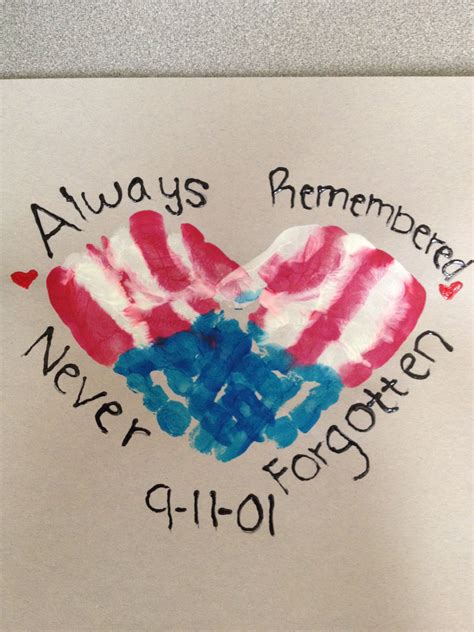 Always Remembered
Never Forgotten
9-11-01